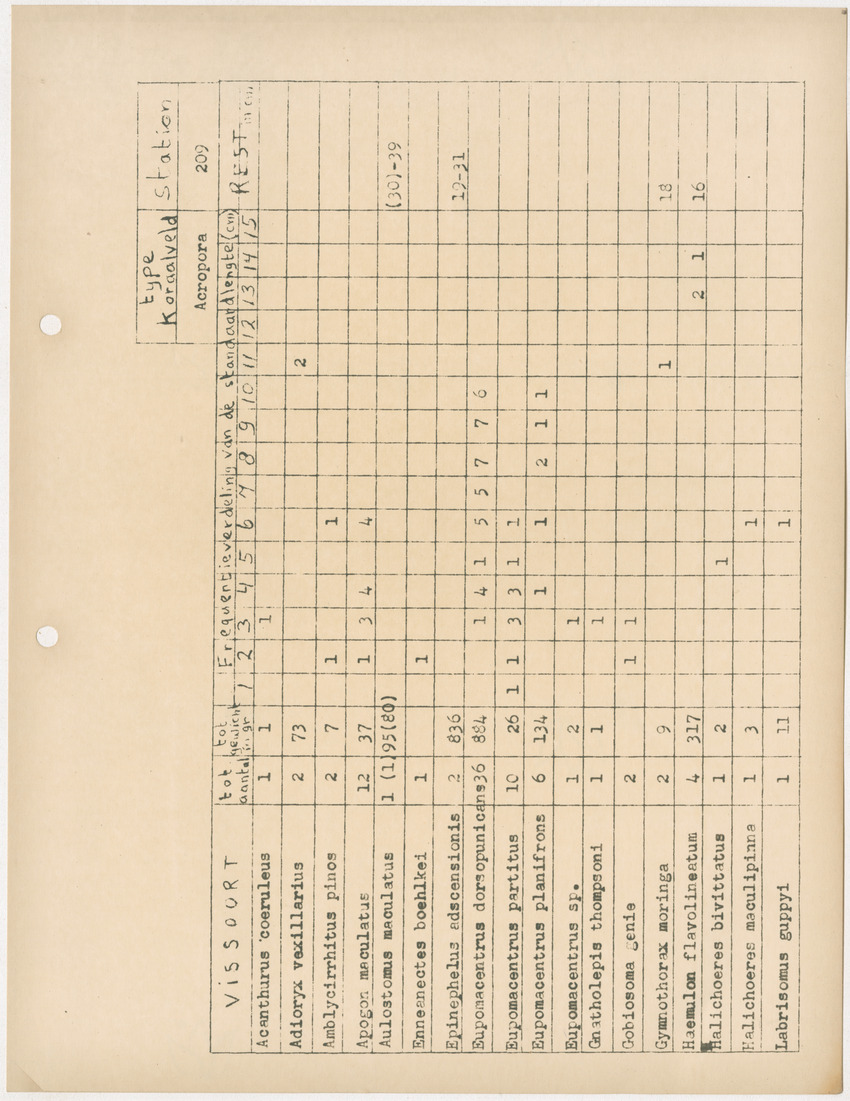 type Koraalveld station
Acropora 209
VISSOORT tot aantal tot gewicht in gr Frequentieverdeling van de standaardlengte (cm) REST in cm
1 2 3 4 5 6 7 8 9 10 11 12 13 14 15
Acanthurus coeruleus 1 1 1
Adioryx vexillarius 2 73 2
Amblycirrhitus pinos 2 7 1 1
Apogon maculatus 12 37 1 3 4 4
Aulostomus maculatus 1 (1) 95(80) (30)-39
Enneanectes boehlkei 1 1
Epinephelus adscensionis 2 836 19-31
Eupomacentrus dorsopunicans 36 884 1 4 1 5 5 7 7 6
Eupomacentrus partitus 10 26 1 1 3 3 1 1
Eupomacentrus planifrons 6 134 1 1 2 1 1
Eupomacentrus sp. 1 2 1
Gnatholepis thompsoni 1 1 1
Gobiosoma genie 2 1 1
Gymnothorax moringa 2 9 1 18
Haemulon flavolineatum 4 317 2 1 16
Halichoeres bivittatus 1 2 1
Halichoeres maculipinna 1 3 1
Labrisomus guppyi 1 11 1